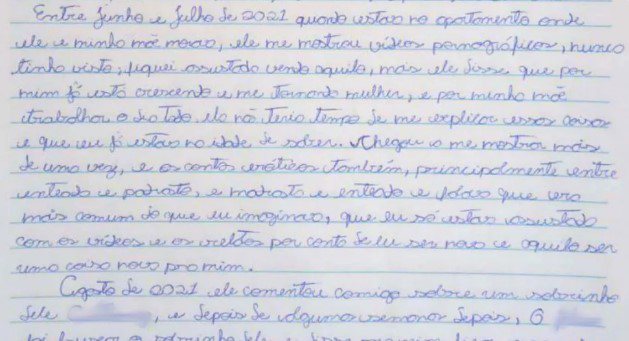 Entre junho e julho de 2021 quando estava no apartamento onde
ele e minha mãe moram, ele me mostrou vídeos pornográficos, nunca
tinha visto, fiquei assustada vendo aquilo, mais ele disse que por
mim já está crescendo e me tornando mulher, e por minha mãe
trabalhar o dia todo, ela não teria tempo de me explicar essas coisas
e que eu já estava na idade de saber. Chegou a me mostrar mais
de uma vez, e os contos eróticos também, principalmente entre
enteada e padrasto, e madrasta e enteado e falava que era
mais comum do que eu imaginava, que eu só estava assustada
com os vídeos e os relatos por conta de eu ser nova e aquilo ser
uma coisa nova pra mim.
Agosto de 2021 ele comentou comigo sobre um sobrinho
dele , e depois de algumas semanas depois, O